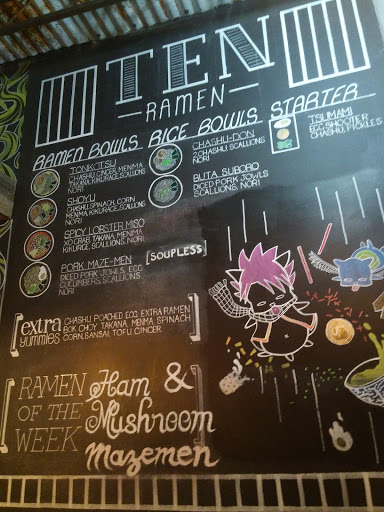 TEN
RAMEN
RAMEN BOWLS
TONKOTSU
CHASHU, GINGER, MENMA
TAKANA, KIKURAGE, SCALLIONS
NORI
SHOYU
CHASHU, SPINACH, CORN
MENMA, KIKURAGE, SCALLIONS
NORI
SPICY LOBSTER MISO
XO CRAB, TAKANA, MENMA
KIKURAGE, SCALLIONS, NORI
PORK MAZE-MEN [SOUPLESS]
DICED PORK JOWLS, EGG
CUCUMBERS, SCALLIONS
NORI
RICE BOWLS
CHASHU-DON
CHASHU, SCALLIONS
NORI
BUTA SUBORO
DICED PORK JOWLS
SCALLIONS, NORI
STARTER
TSUMAMI
EGG SHOOTER
CHASHU, PICKLES
extra
yummies
CHASHU POACHED EGG EXTRA RAMEN
BOK CHOY TAKANA MENMA SPINACH
CORN SANSAI TOFU GINGER
RAMEN
OF THE
WEEK
Ham &
Mushroom
Mazemen